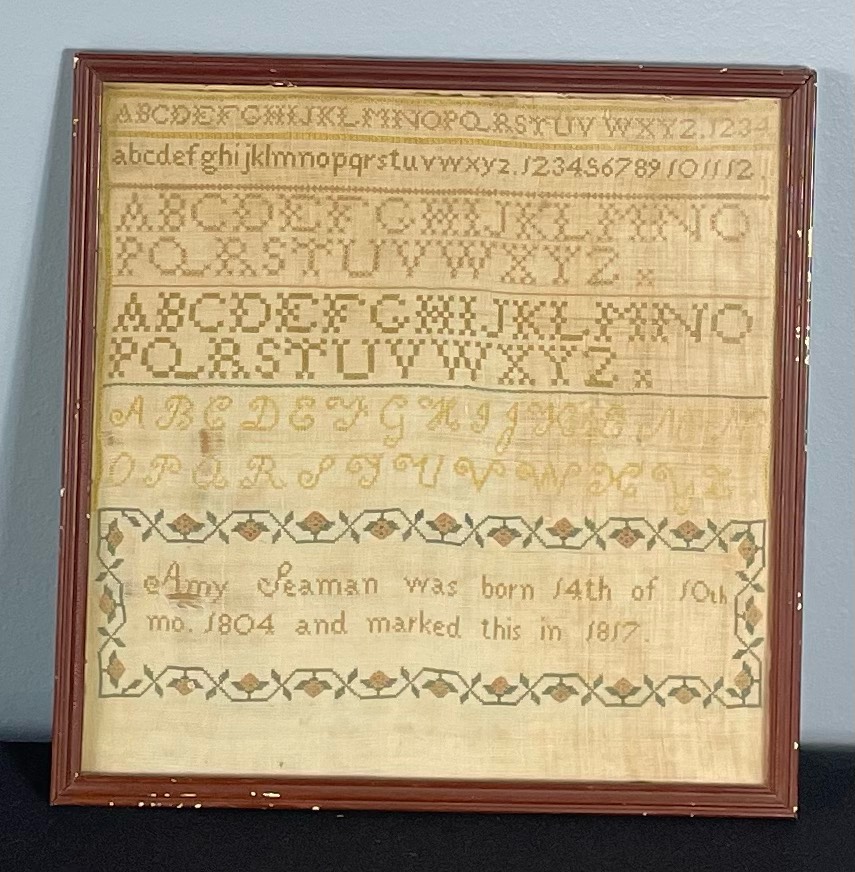 ABCDEFGHIJKLMNOPQRSTUVWXYZ.1234
abcdefghijklmnopqrstuvwxyz.123456789101112.
ABCDEFGHIJKLMNO
PQRSTUVWXYZ x
ABCDEFGHIJKLMNO
PQRSTUVWXYZ x
A B C D E F G H I J K L M N
O P Q R S T U V W X Y Z.
Amy Seaman was born 14th of 10th
mo. 1804 and marked this in 1817.